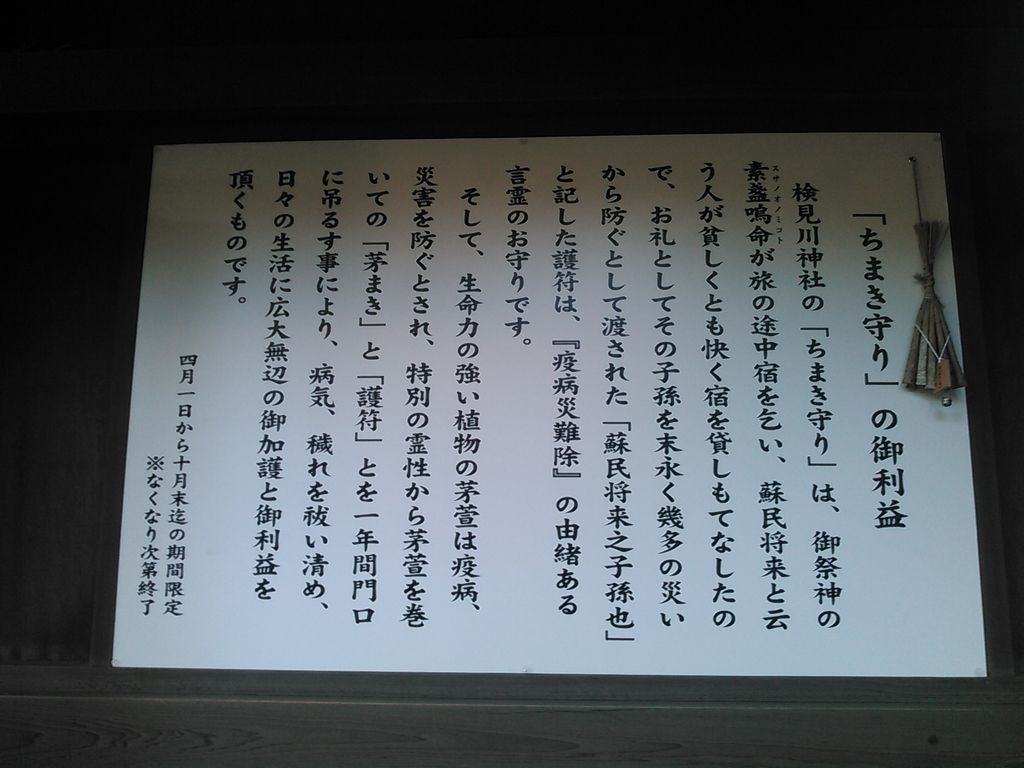 「ちまき守り」の御利益
検見川神社の「ちまき守り」は、御祭神の
素盞嗚命が旅の途中宿を乞い、蘇民将来と云
スサノオノミコト
う人が貧しくとも快く宿を貸しもてなしたの
で、お礼としてその子孫を末永く幾多の災い
から防ぐとして渡された「蘇民将来之子孫也」
と記した護符は、『疫病災難除』の由緒ある
言霊のお守りです。
そして、生命力の強い植物の茅萱は疫病、
災害を防ぐとされ、特別の霊性から茅萱を巻
いての「茅まき」と「護符」とを一年間門口
に吊るす事により、病気、穢れを祓い清め、
日々の生活に広大無辺の御加護と御利益を
頂くものです。
四月一日から十月末迄の期間限定
※なくなり次第終了